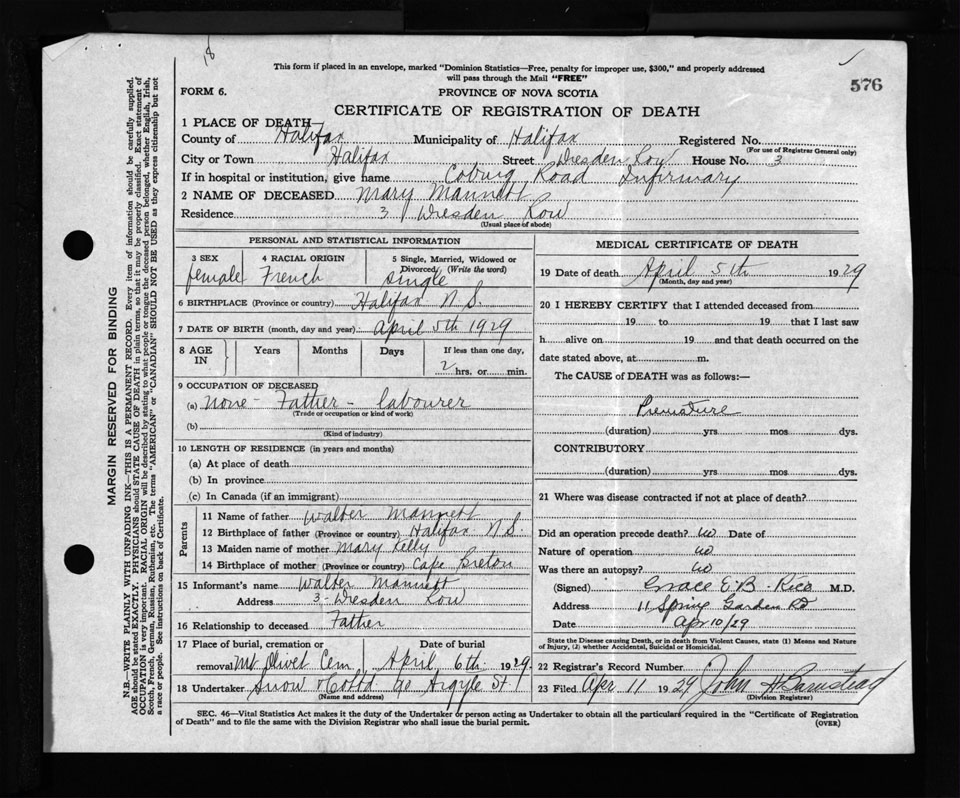 18
This form if placed in an envelope, marked "Dominion Statistics—Free, penalty for improper use, $300," and properly addressed
will pass through the Mail "FREE"
576
FORM 6.
PROVINCE OF NOVA SCOTIA
CERTIFICATE OF REGISTRATION OF DEATH
1 PLACE OF DEATH
County of Halifax Municipality of Halifax Registered No.
(For use of Registrar General only)
City or Town Halifax Street Dresden Row House No. 3
If in hospital or institution, give name Coburg Road Infirmary
2 NAME OF DECEASED Mary Mannett
Residence 3 Dresden Row
(Usual place of abode)
PERSONAL AND STATISTICAL INFORMATION
3 SEX 4 RACIAL ORIGIN 5 Single, Married, Widowed or
Divorced, (Write the word)
female French single
6 BIRTHPLACE (Province or country) Halifax N.S.
7 DATE OF BIRTH (month, day and year) April 5th 1929
8 AGE IN Years Months Days If less than one day,
2 hrs. or min.
9 OCCUPATION OF DECEASED
(a) none - Father - labourer
(Trade or occupation or kind of work)
(b)
(Kind of industry)
10 LENGTH OF RESIDENCE (in years and months)
(a) At place of death
(b) In province
(c) In Canada (if an immigrant)
Parents
11 Name of father Walter Mannett
12 Birthplace of father (Province or country) Halifax N.S.
13 Maiden name of mother Mary Kelly
14 Birthplace of mother (Province or country) Cape Breton
15 Informant's name Walter Mannett
Address 3 - Dresden Row
16 Relationship to deceased Father
17 Place of burial, cremation or Date of burial
removal Mt Olivet Cem April 6th 1929
18 Undertaker Snow & Co Ltd 90 Argyle St.
(Name and address)
MEDICAL CERTIFICATE OF DEATH
19 Date of death April 5th 1929
(Month, day and year)
20 I HEREBY CERTIFY that I attended deceased from
19 to 19 that I last saw
h alive on 19 and that death occurred on the
date stated above, at m.
The CAUSE of DEATH was as follows:—
Premature
(duration) yrs mos dys.
CONTRIBUTORY
(duration) yrs mos dys.
21 Where was disease contracted if not at place of death?
Did an operation precede death? no Date of
Nature of operation no
Was there an autopsy? no
(Signed) Grace E. B. Rice M.D.
Address 11 Spring Garden Rd
Date Apr 10/29
State the Disease causing Death, or in death from Violent Causes, state (1) Means and Nature
of Injury, (2) whether Accidental, Suicidal or Homicidal.
22 Registrar's Record Number
23 Filed Apr 11 1929 John H Barnstead
(Division Registrar)
SEC. 46—Vital Statistics Act makes it the duty of the Undertaker or person acting as Undertaker to obtain all the particulars required in the "Certificate of Registration
of Death" and to file the same with the Division Registrar who shall issue the burial permit.
(OVER)
MARGIN RESERVED FOR BINDING
N.B.—WRITE PLAINLY WITH UNFADING INK—THIS IS A PERMANENT RECORD. Every item of information should be carefully supplied.
AGE should be stated EXACTLY. PHYSICIANS should STATE CAUSE OF DEATH in plain terms, so that it may be properly classified. Exact statement of
OCCUPATION is very important. RACIAL ORIGIN will be described by stating to what people or tongue the deceased person belonged, whether English, Irish,
Scotch, French, German, Russian, Ruthenian, etc. The terms "AMERICAN" or "CANADIAN" SHOULD NOT BE USED as they express citizenship but not
a race or people. See instructions on back of Certificate.